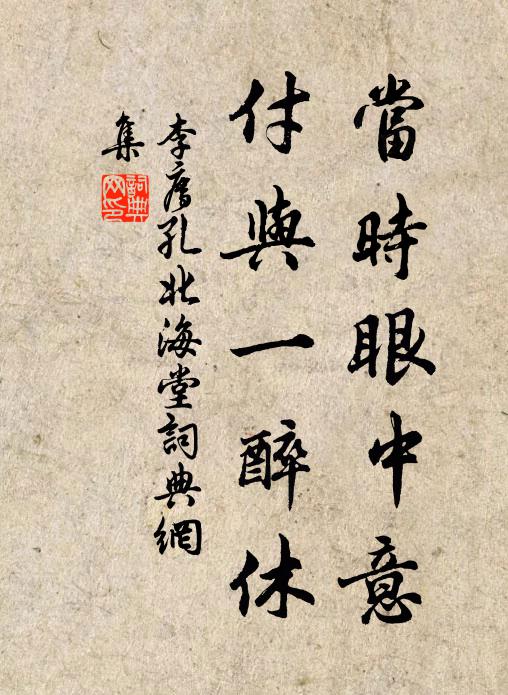 當時眼中意
付與一醉休
李廌孔北海堂詞典網
集
詞典
网印